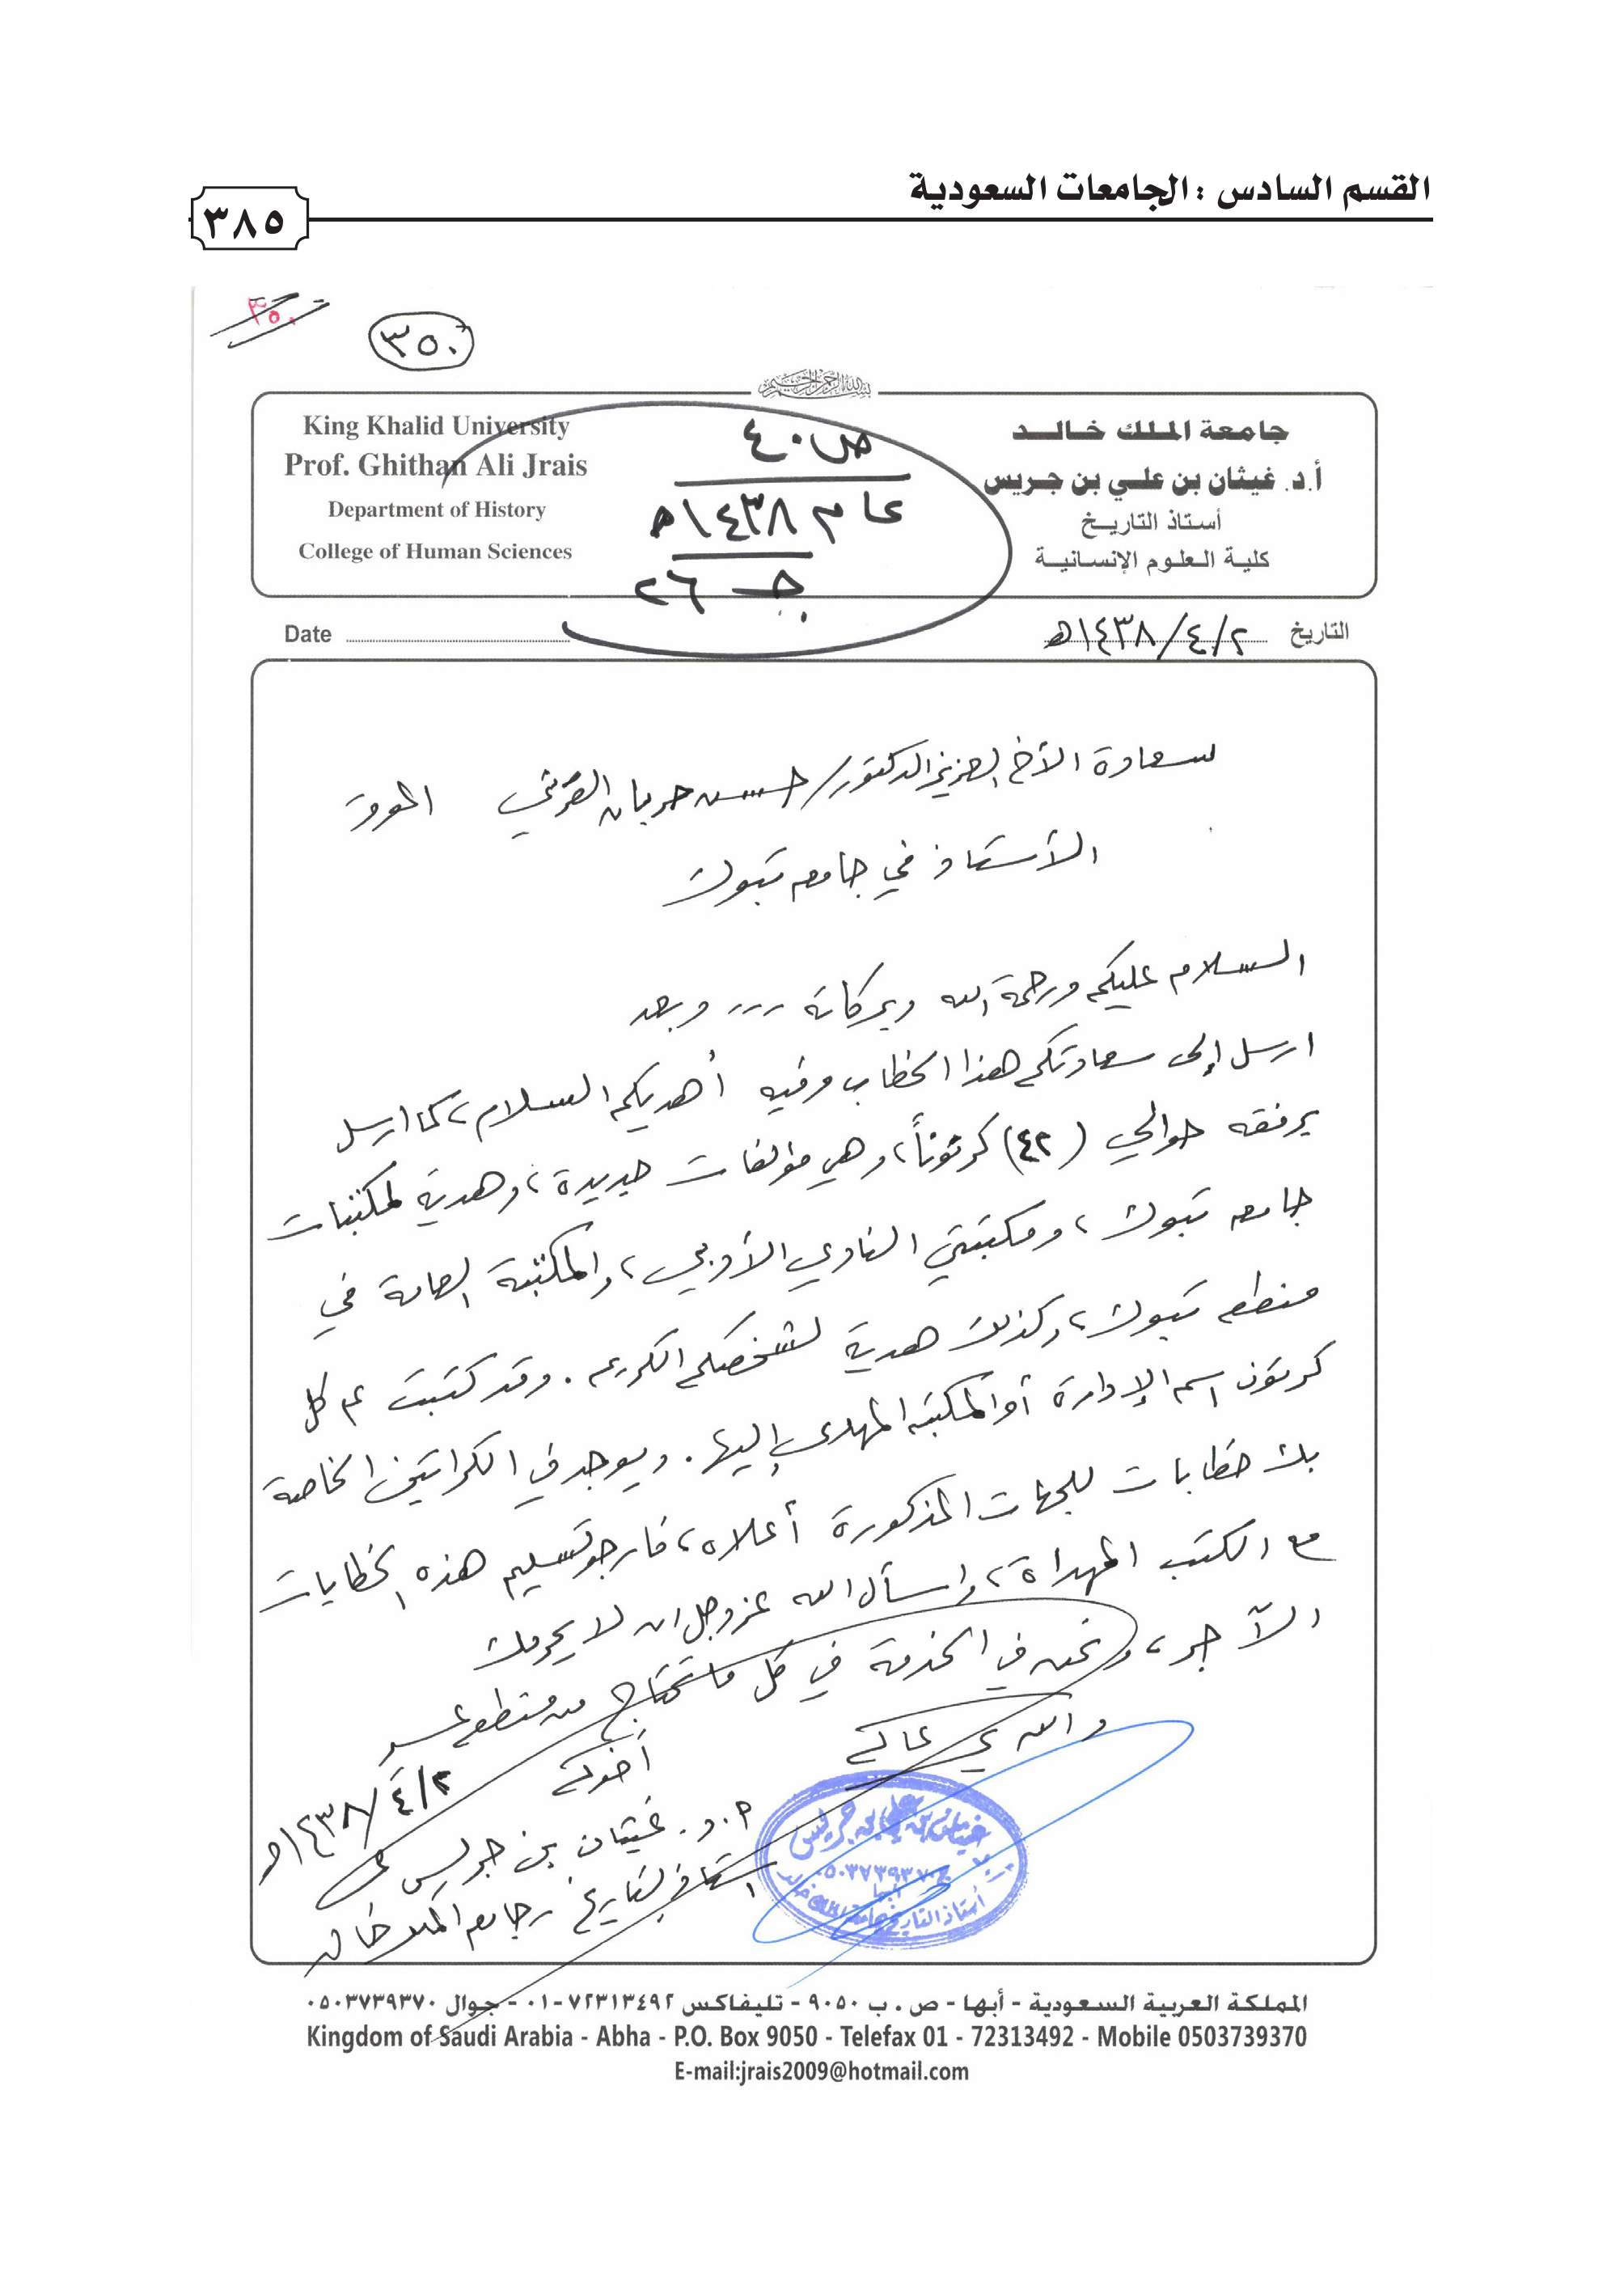 القسم السادس : الجامعات السعودية
٣٨٥
٣٥٠
٣٥٠
بسم الله الرحمن الرحيم
جامعة الملك خالد
أ.د. غيثان بن علي بن جريس
أستاذ التاريخ
كلية العلوم الإنسانية
King Khalid University
Prof. Ghithan Ali Jrais
Department of History
College of Human Sciences
ص ٤٠
عام ١٤٣٨هـ
جـ ٢٦
التاريخ ٢/٤/١٤٣٨هـ
Date
سعادة الأخ العزيز الدكتور/ حسن الموقر
الأستاذ في جامعة تبوك
السلام عليكم ورحمة الله وبركاته ... وبعد
ارسل إلى سعادتكم هذا الخطاب وفيه أهديكم السلام، كما ارسل
برفقه حوالي (٤٢) كرتوناً، وهي مؤلفات جديدة، وهدية لمكتبات
جامعة تبوك، ومكتبتي النادي الأدبي، والمكتبة العامة في
منطقة تبوك، وكذلك هدية لشخصكم الكريم. وقد كتبت على كل
كرتون اسم الإدارة أو المكتبة المهدى إليها. ويوجد في الكراتين الخاصة
بك خطابات للجهات المذكورة أعلاه، فارجو تسليم هذه الخطابات
مع الكتب المهداة، واسأل الله عزوجل ان لا يحرمك
الآجر، ونحن في الخدمة في كل ما تحتاج من منطقة عسير
والله يرعاكم
أخوكم
أ.د. غيثان بن جريس
استاذ التاريخ بجامعة الملك خالد
٢/٤/١٤٣٨هـ
غيثان بن علي بن جريس
ج ٠٥٠٣٧٣٩٣٧٠
أبها
أستاذ التاريخ بجامعة الملك خالد
المملكة العربية السعودية - أبها - ص . ب ٩٠٥٠ - تليفاكس ٧٢٣١٣٤٩٢-٠١ - جوال ٠٥٠٣٧٣٩٣٧٠
Kingdom of Saudi Arabia - Abha - P.O. Box 9050 - Telefax 01 - 72313492 - Mobile 0503739370
E-mail:jrais2009@hotmail.com